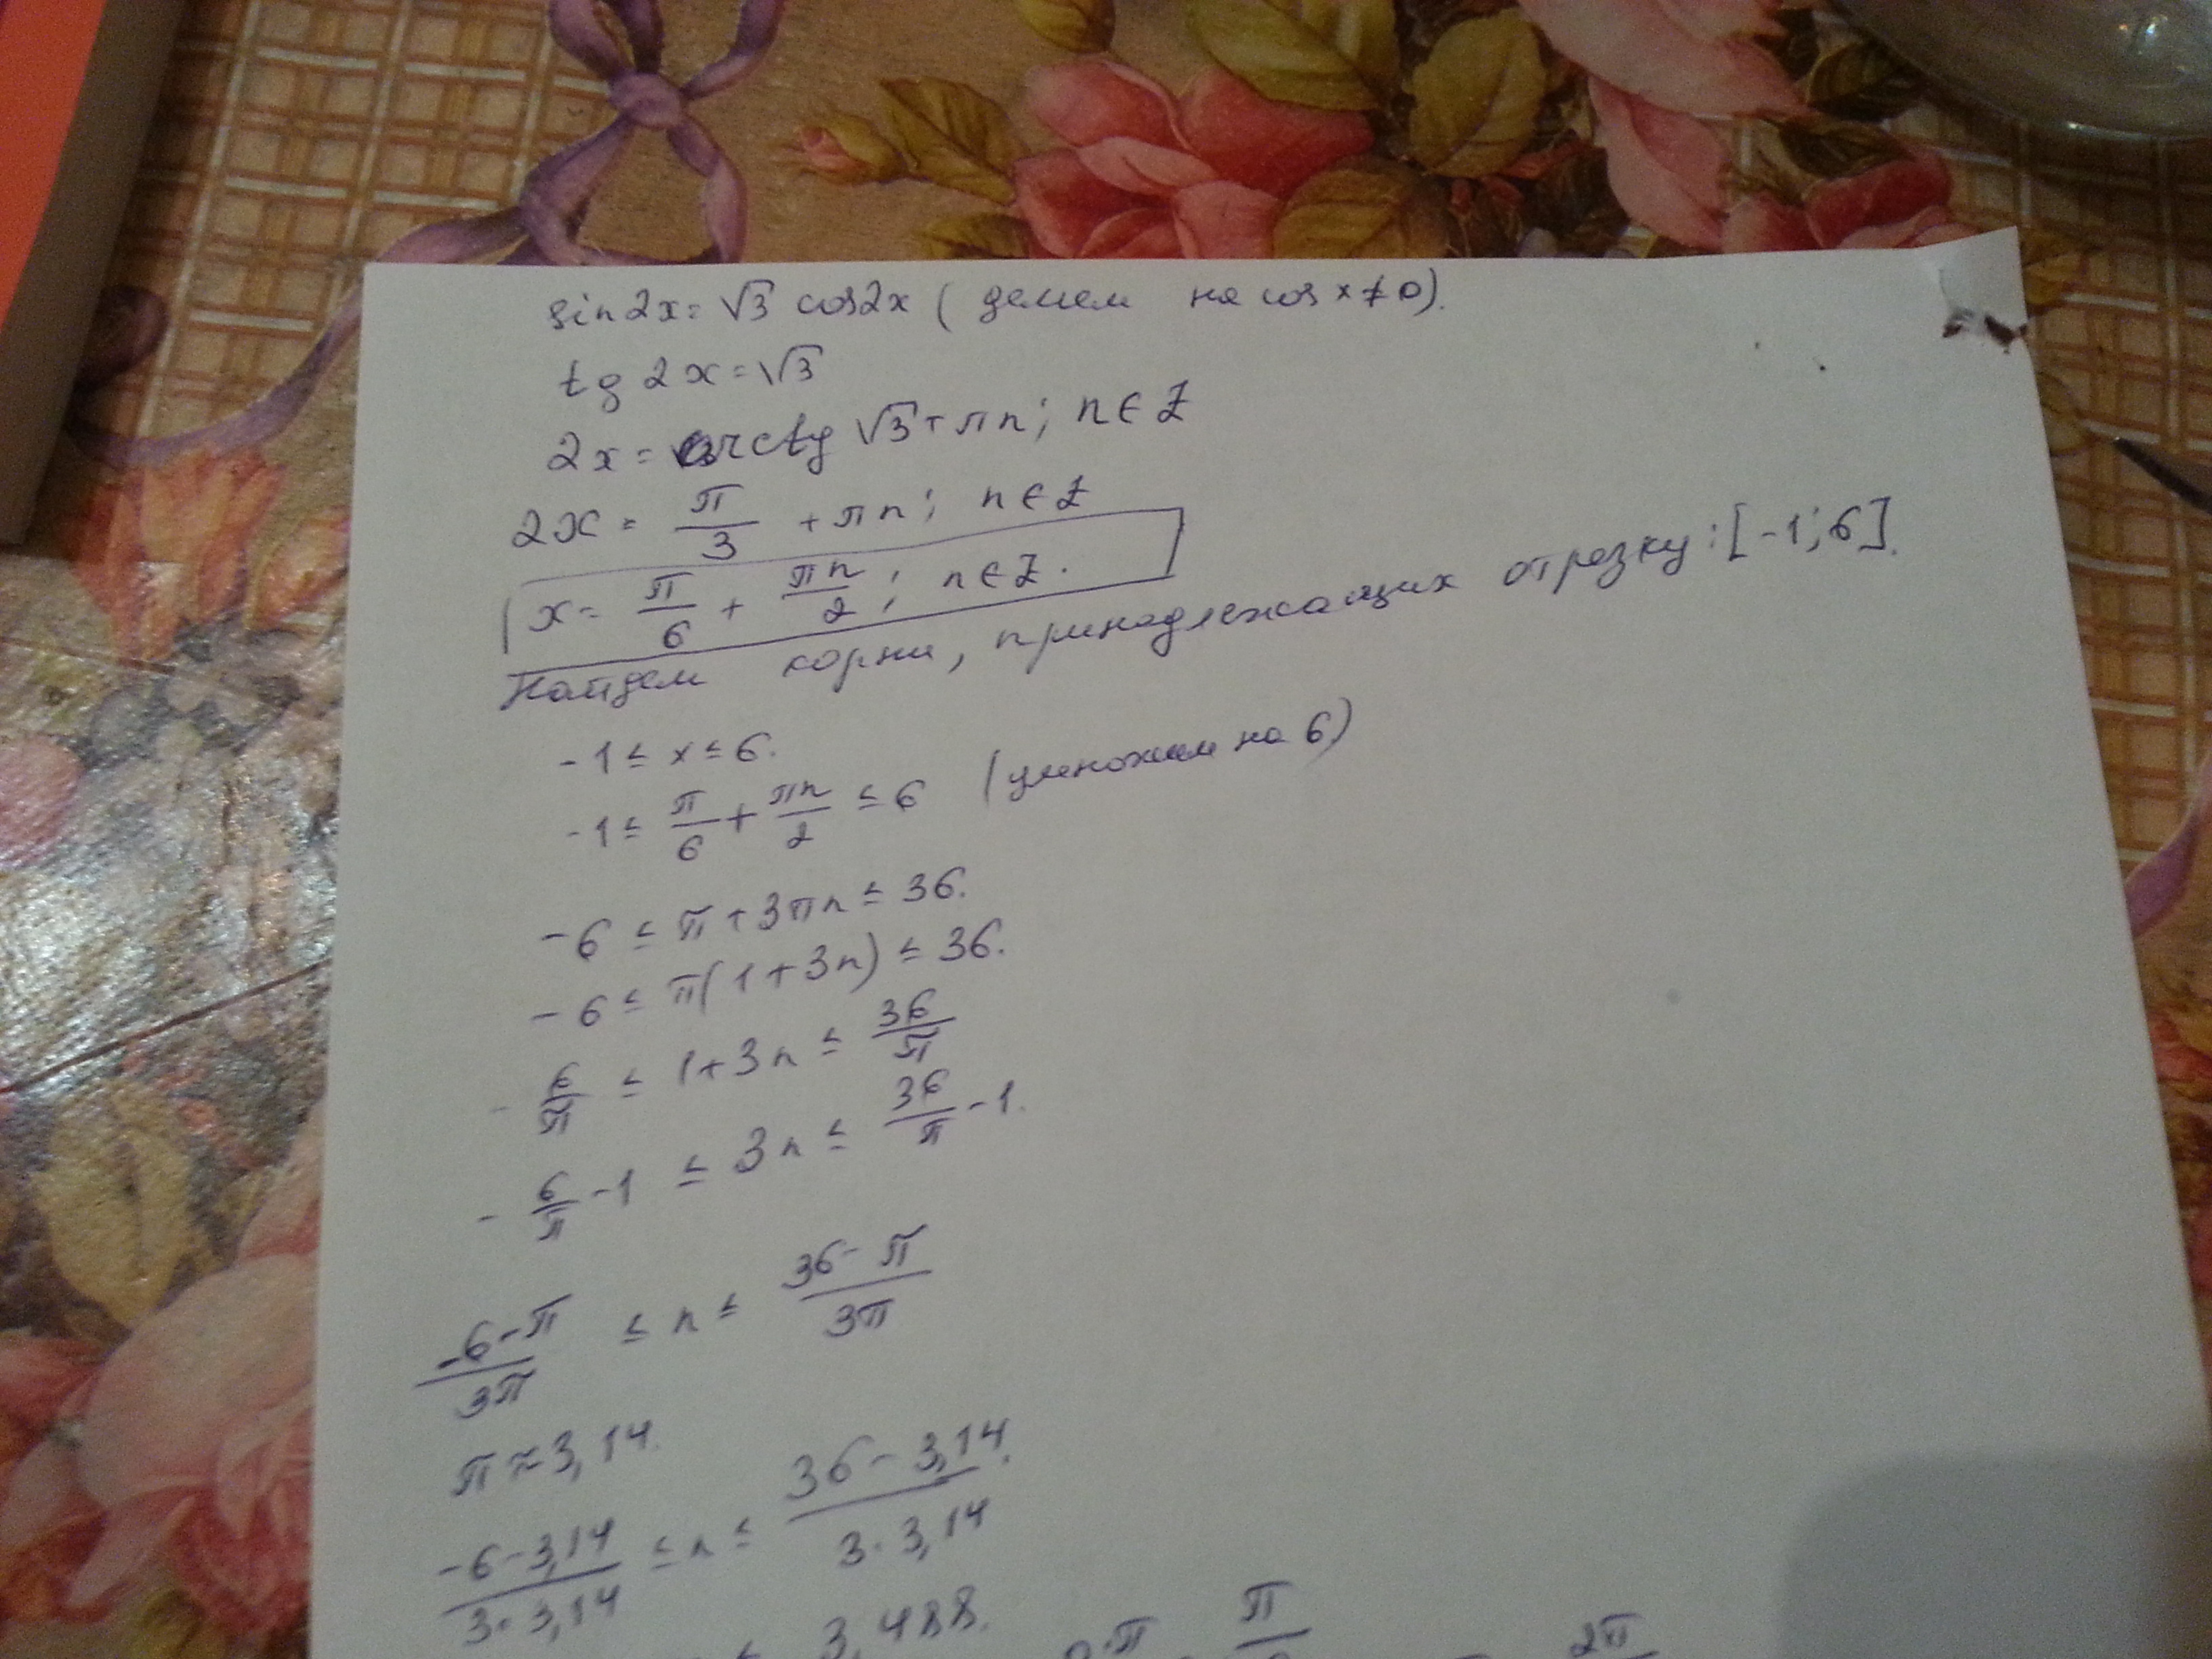 sin2x=√3 cos2x (делим на cos x≠0).
tg 2x=√3
2x= arctg √3+πn; n∈Z
2x= π/3 +πn; n∈Z
x= π/6 + πn/2; n∈Z.
Найдем корни, принадлежащих отрезку: [-1;6].
-1≤x≤6.
-1≤ π/6 + πn/2 ≤6 (умножим на 6)
-6≤π+3πn≤36.
-6≤π(1+3n)≤36.
-6/π ≤ 1+3n ≤ 36/π
-6/π -1 ≤ 3n ≤ 36/π -1.
(-6-π)/3π ≤ n ≤ (36-π)/3π
π≈3,14.
(-6-3,14)/(3·3,14) ≤n≤ (36-3,14)/(3·3,14).
≤ 3,488.